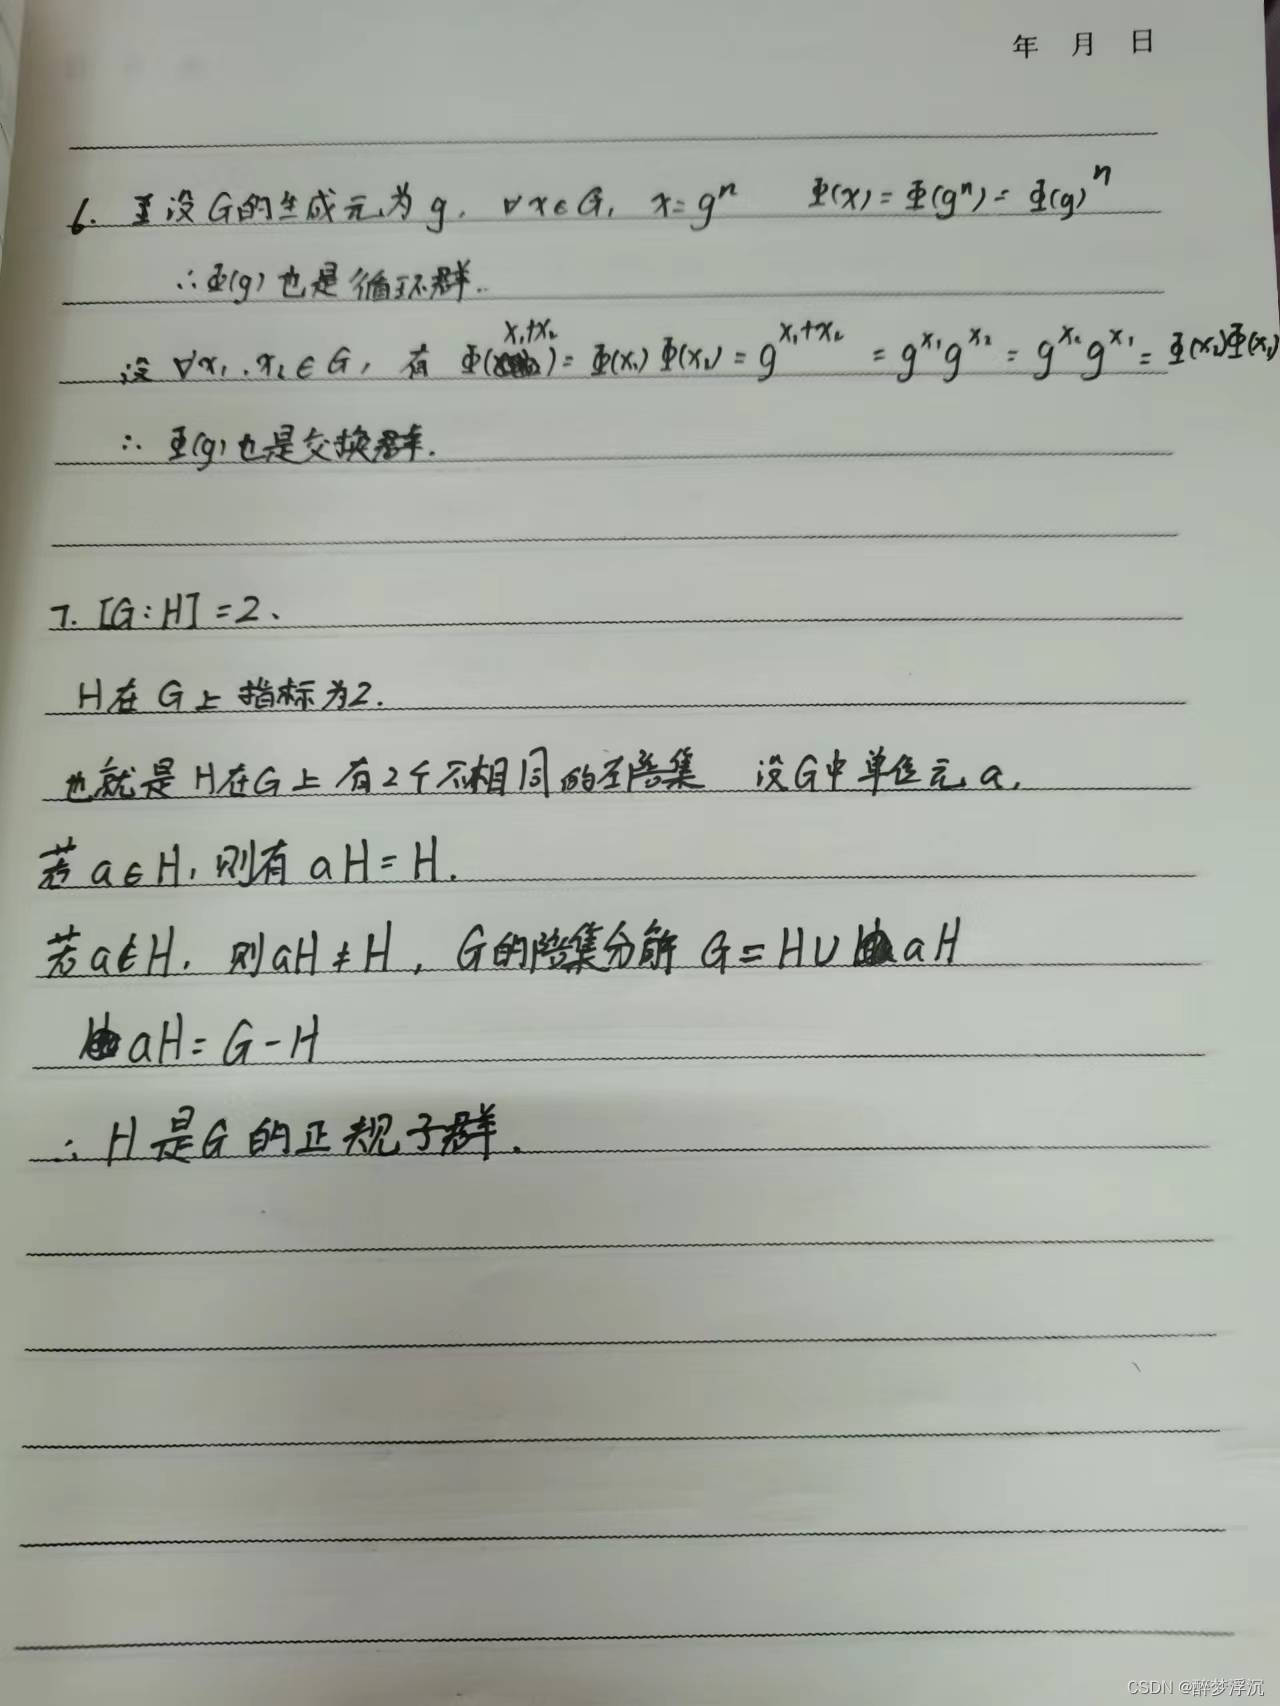 年 月 日
6. 设G的生成元为g, ∀x∈G, x=gⁿ Φ(x)=Φ(gⁿ)=Φ(g)ⁿ
∴Φ(g)也是循环群.
设∀x₁,x₂∈G, 有 Φ(x₁+x₂)=Φ(x₁)Φ(x₂)=g^(x₁+x₂)=g^x₁ g^x₂=g^x₂ g^x₁=Φ(x₂)Φ(x₁)
∴ Φ(g)也是交换群.
7. [G:H]=2、
H在G上指标为2.
也就是H在G上有2个不相同的左陪集 设G中单位元a,
若a∈H, 则有aH=H.
若a∉H, 则aH≠H, G的陪集分解 G=H∪aH
aH=G-H
∴H是G的正规子群.
CSDN @醉梦浮沉